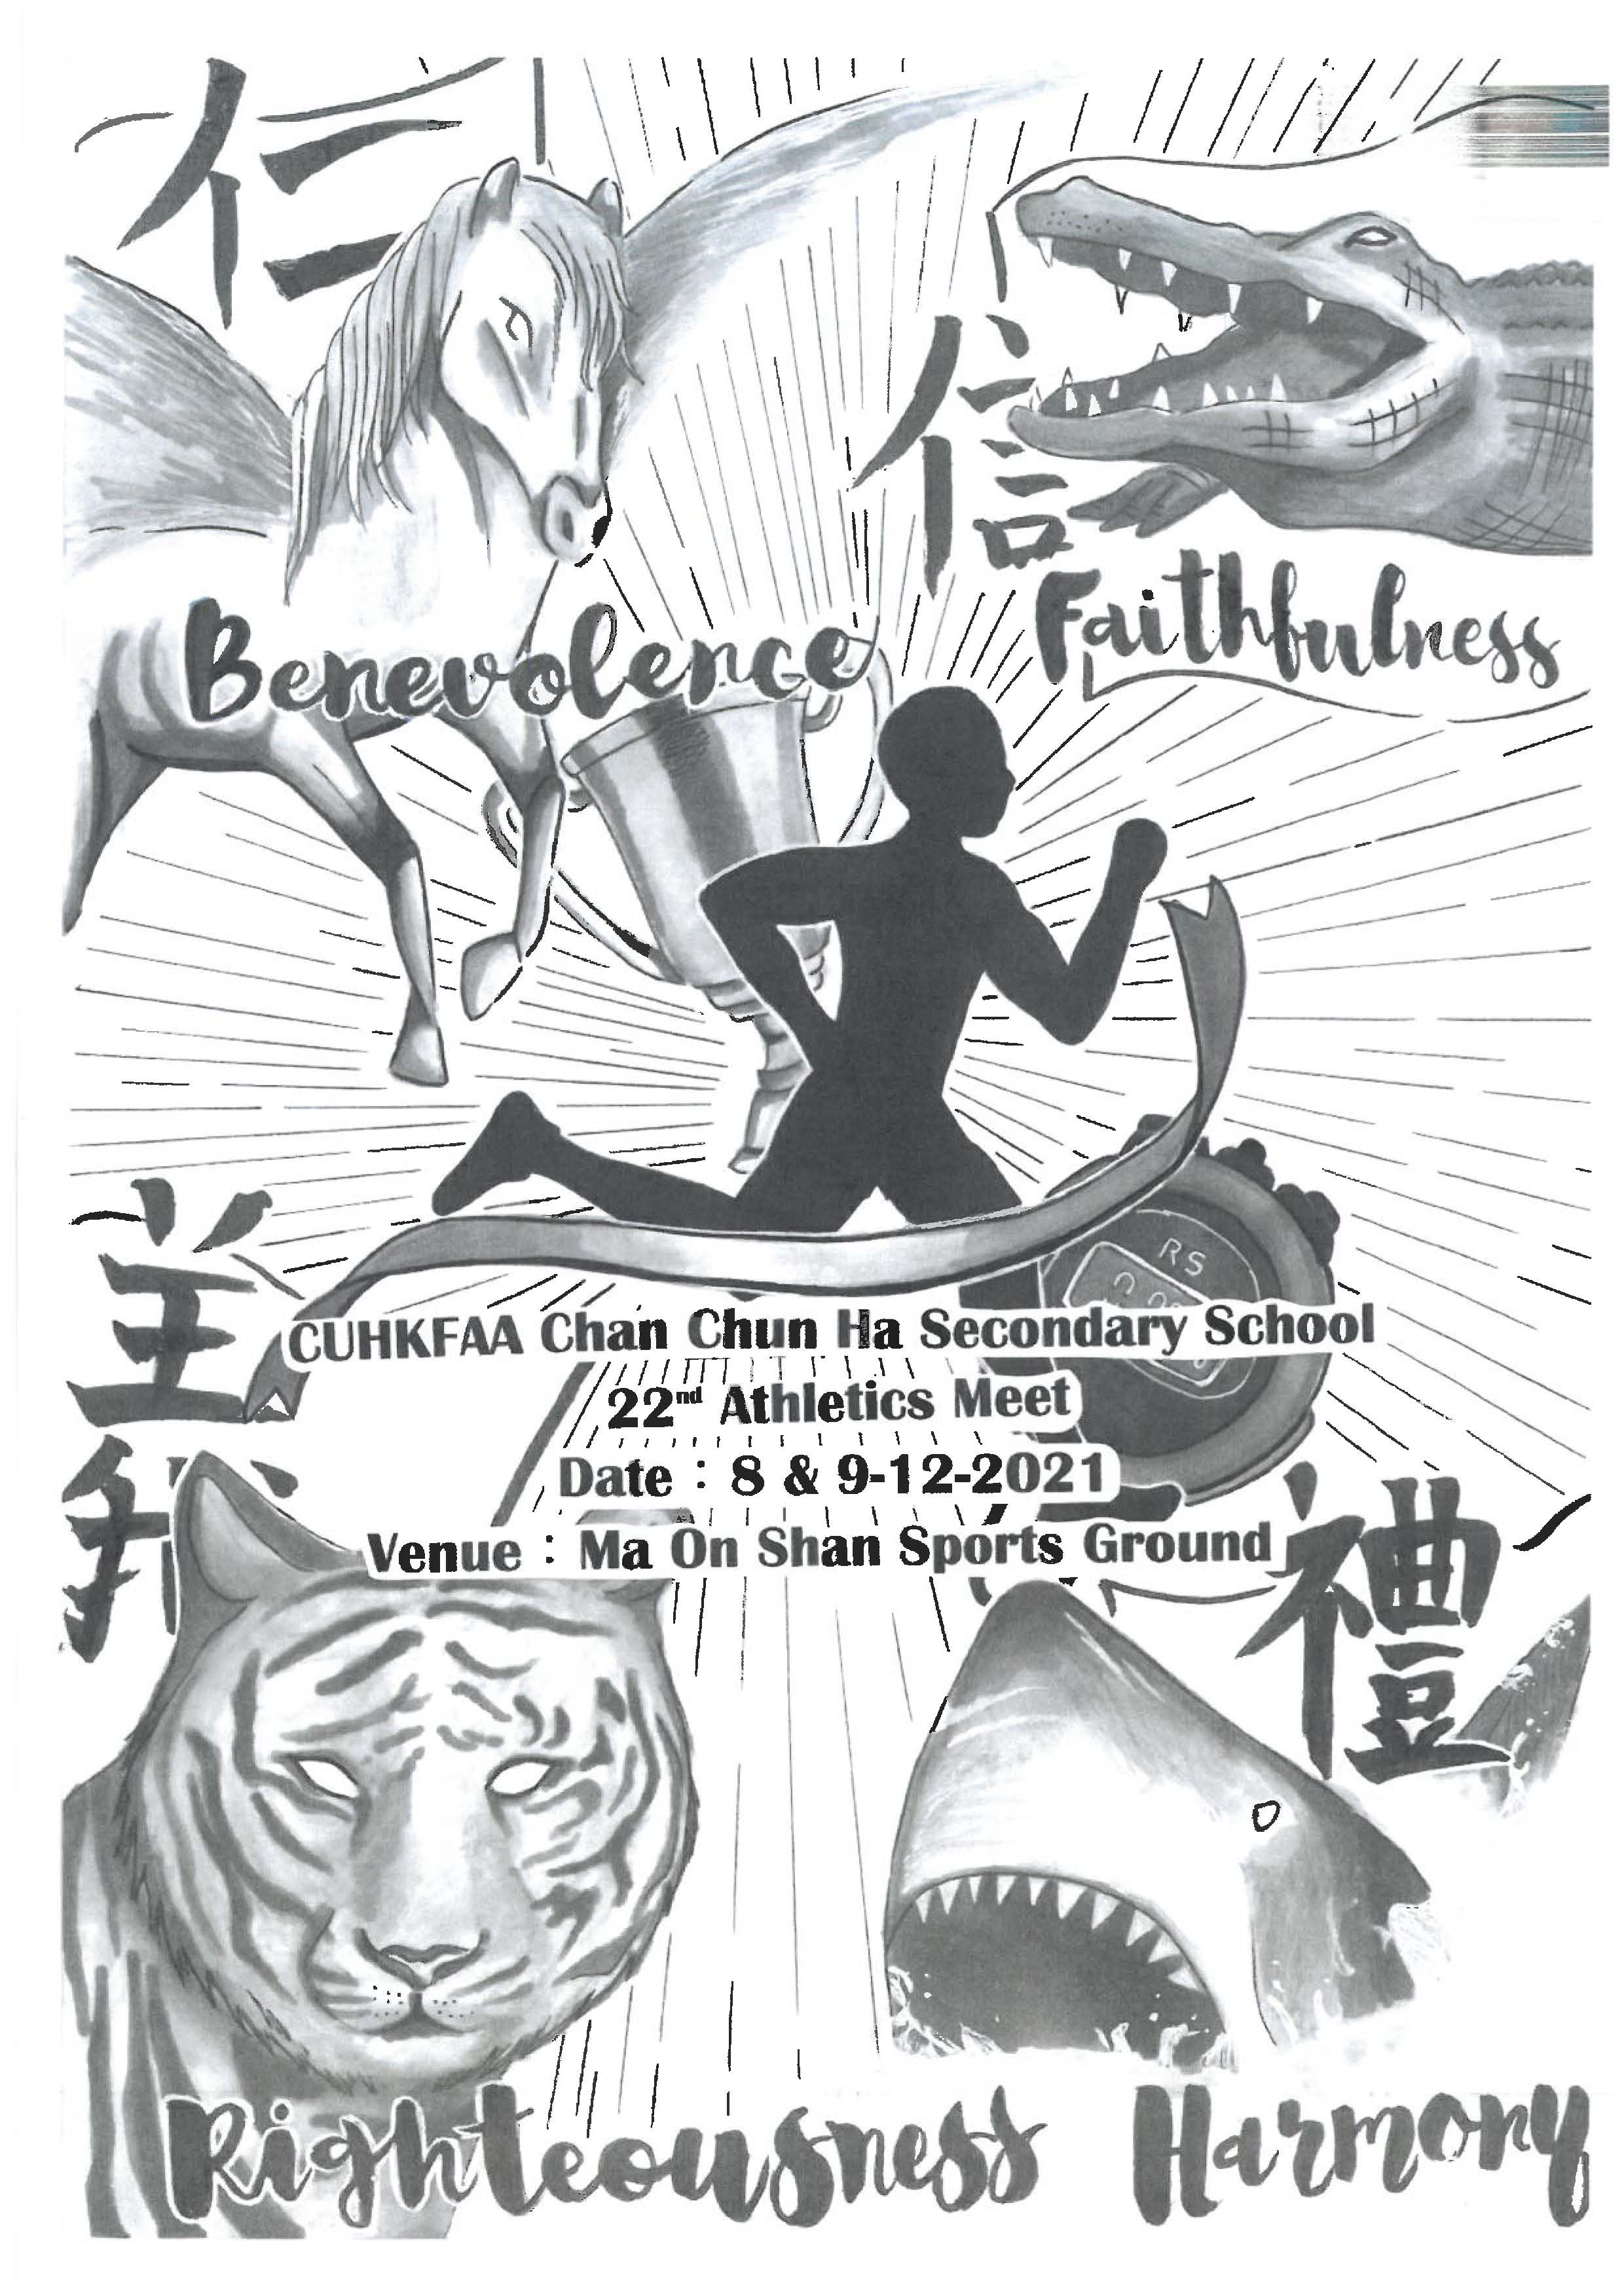 仁
信
Faithfulness
Benevolence
RS
CUHKFAA Chan Chun Ha Secondary School
22nd Athletics Meet
Date：8 & 9-12-2021
Venue：Ma On Shan Sports Ground
義
禮
Righteousness Harmony